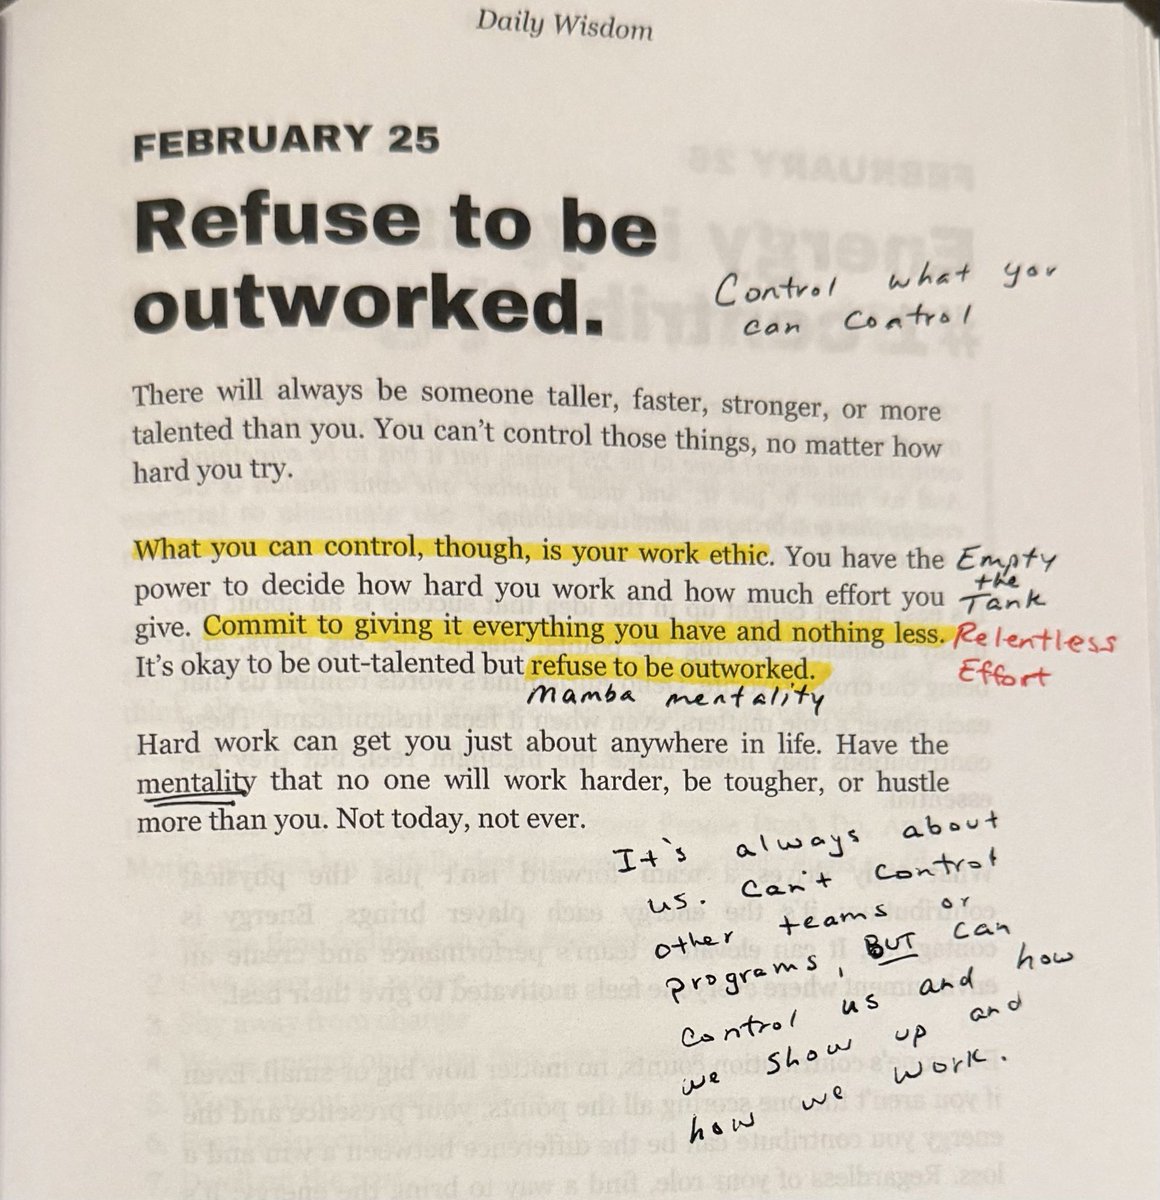 Daily Wisdom
FEBRUARY 25
Refuse to be
outworked.
Control what you
can control
There will always be someone taller, faster, stronger, or more
talented than you. You can’t control those things, no matter how
hard you try.
What you can control, though, is your work ethic. You have the
power to decide how hard you work and how much effort you
give. Commit to giving it everything you have and nothing less.
It’s okay to be out-talented but refuse to be outworked.
Empty
the
Tank
Relentless
Effort
Mamba mentality
Hard work can get you just about anywhere in life. Have the
mentality that no one will work harder, be tougher, or hustle
more than you. Not today, not ever.
It's always about
us. Can't control
other teams or
programs, BUT can
control us and how
we show up and
how we work.